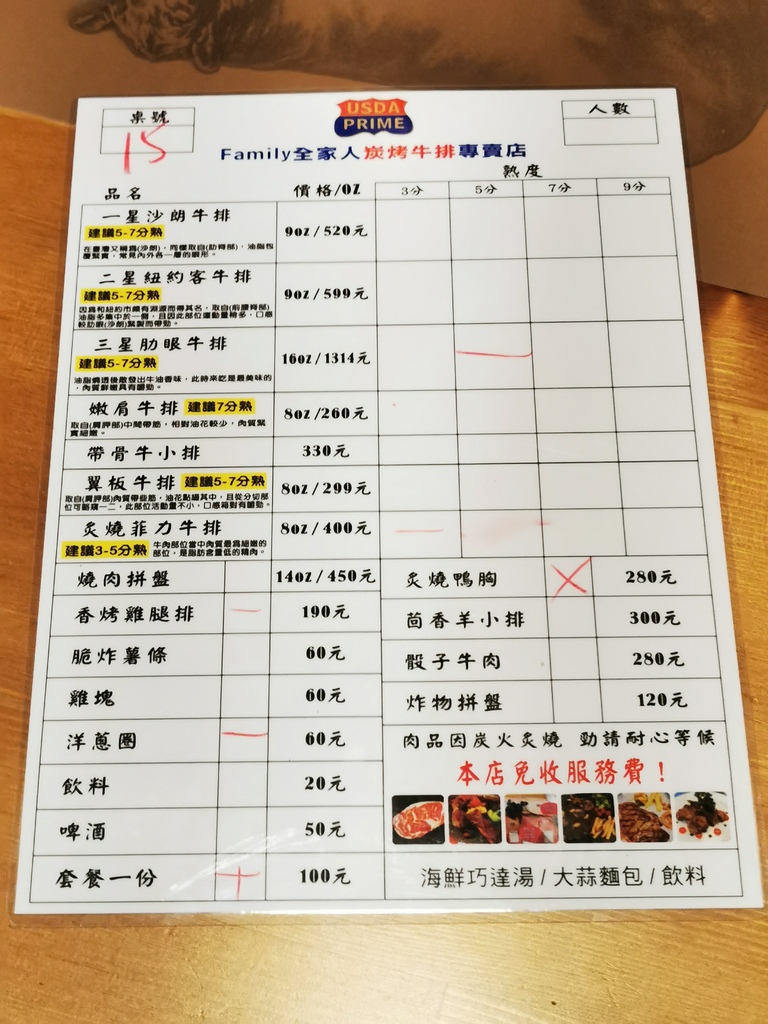 USDA
PRIME
桌號
15
人數
Family全家人炭烤牛排專賣店
熟度
品名 價格/OZ 3分 5分 7分 9分
一星沙朗牛排
建議5-7分熟
9oz/520元
二星紐約客牛排
建議5-7分熟
9oz/599元
三星肋眼牛排
建議5-7分熟
16oz/1314元
油脂燒透後散發出牛油香味，此時來吃是最美味的
，肉質鮮嫩具有嚼勁。
嫩肩牛排 建議7分熟
8oz/260元
取自(肩胛部)中間帶筋，相對油花較少，肉質緊
實細嫩。
帶骨牛小排 330元
翼板牛排 建議5-7分熟
8oz/299元
炙燒菲力牛排 8oz/400元
建議3-5分熟
牛肉部位當中肉質最為細嫩的
部位，是脂肪含量低的精肉。
燒肉拼盤 14oz/450元
香烤雞腿排 190元
脆炸薯條 60元
雞塊 60元
洋蔥圈 60元
飲料 20元
啤酒 50元
套餐一份 100元
炙燒鴨胸 280元
茴香羊小排 300元
骰子牛肉 280元
炸物拼盤 120元
肉品因炭火炙燒 勁請耐心等候
本店免收服務費！
海鮮巧達湯/大蒜麵包/飲料